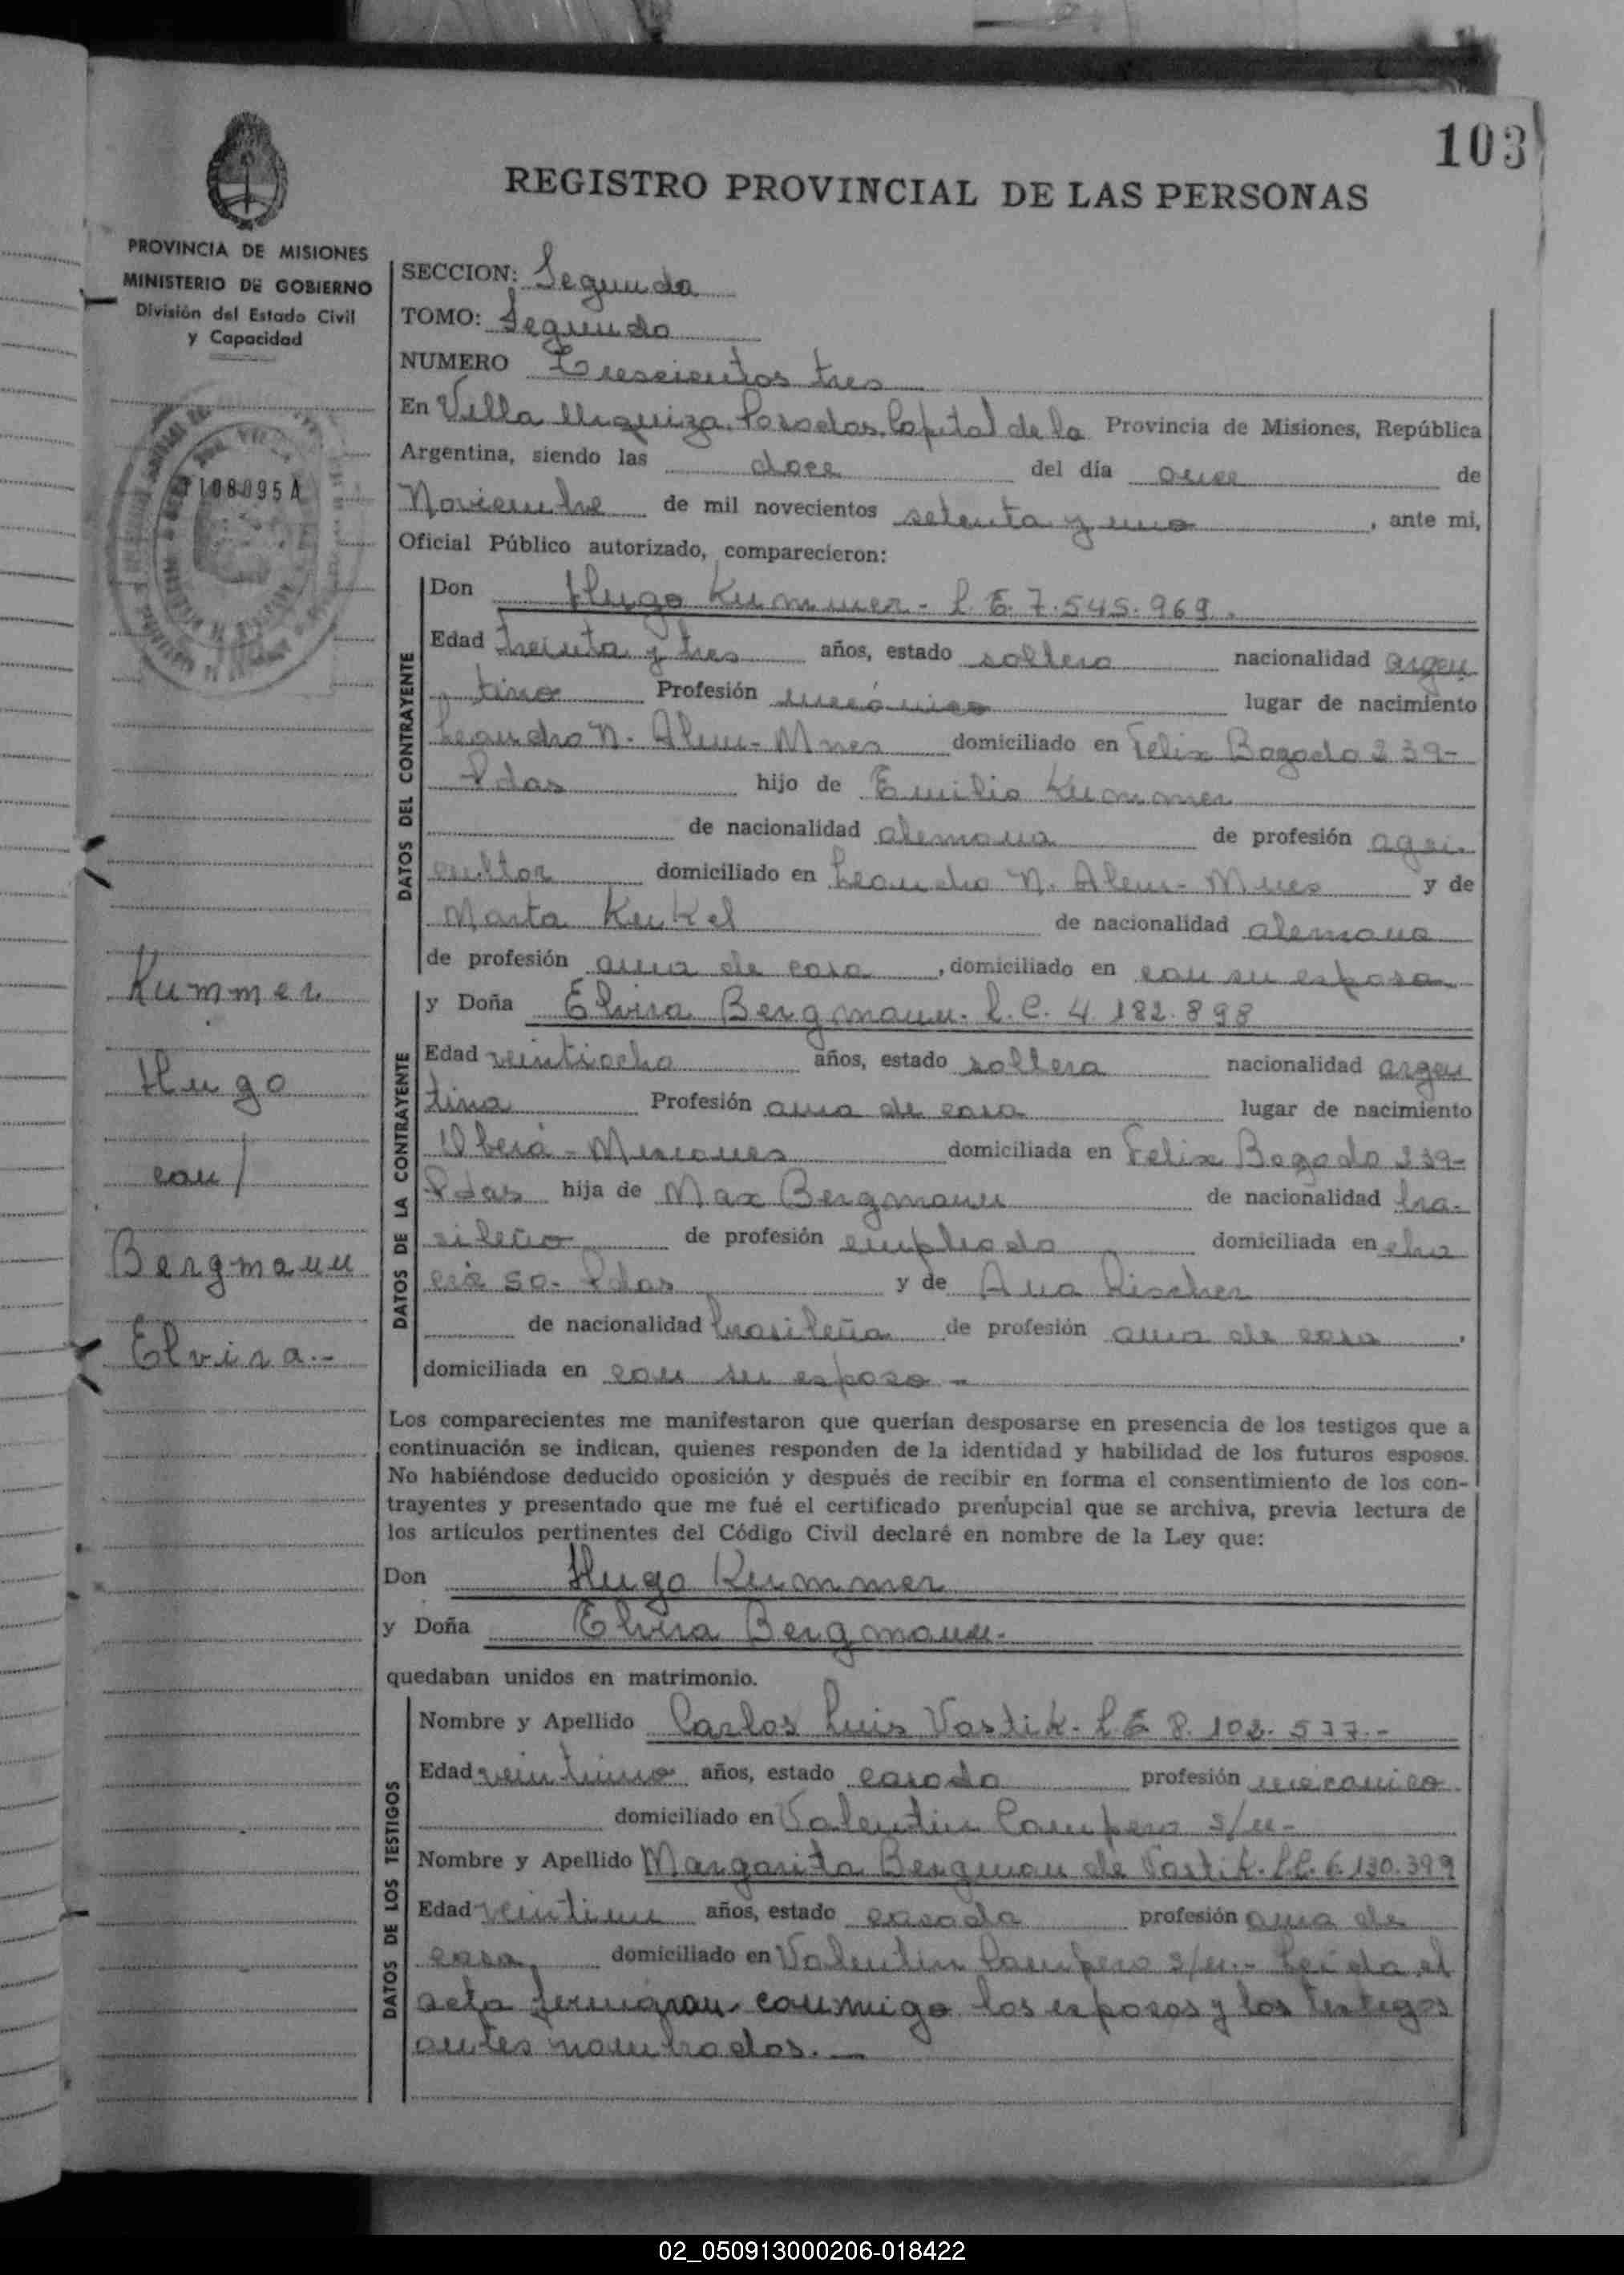 103
REGISTRO PROVINCIAL DE LAS PERSONAS
PROVINCIA DE MISIONES
MINISTERIO DE GOBIERNO
División del Estado Civil
y Capacidad
108095 A
SECCION: Segunda
TOMO: Segundo
NUMERO Trescientos tres
En Villa Urquiza, Posadas, Capital de la Provincia de Misiones, República
Argentina, siendo las doce del día once de
Noviembre de mil novecientos setenta y uno, ante mi,
Oficial Público autorizado, comparecieron:
DATOS DEL CONTRAYENTE
Don Hugo Kummer - L.E. 7.545.969.
Edad treinta y tres años, estado soltero nacionalidad argen
tino Profesión mecánico lugar de nacimiento
Leandro N. Alem - Mnes domiciliado en Felix Bogado 239-
Pdas hijo de Emilio Kummer
de nacionalidad alemana de profesión agri-
cultor domiciliado en Leandro N. Alem - Mnes y de
Marta Keikel de nacionalidad alemana
de profesión ama de casa, domiciliado en con su esposo.
DATOS DE LA CONTRAYENTE
y Doña Elvira Bergmann - L.C. 4.182.898
Edad veintiocho años, estado soltera nacionalidad argen
tina Profesión ama de casa lugar de nacimiento
Oberá - Misiones domiciliada en Felix Bogado 239-
Pdas hija de Max Bergmann de nacionalidad bra-
sileño de profesión empleado domiciliada en cha
cra 50- Pdas y de Ana Rischer
de nacionalidad brasileña de profesión ama de casa,
domiciliada en con su esposo -
Kummer
Hugo
con/
Bergmann
Elvira.-
Los comparecientes me manifestaron que querían desposarse en presencia de los testigos que a
continuación se indican, quienes responden de la identidad y habilidad de los futuros esposos.
No habiéndose deducido oposición y después de recibir en forma el consentimiento de los con-
trayentes y presentado que me fué el certificado prenupcial que se archiva, previa lectura de
los artículos pertinentes del Código Civil declaré en nombre de la Ley que:
Don Hugo Kummer
y Doña Elvira Bergmann.
quedaban unidos en matrimonio.
DATOS DE LOS TESTIGOS
Nombre y Apellido Carlos Luis Vastik - L.E 8.102.577.-
Edad veintiuno años, estado casado profesión mecanico
domiciliado en Valentin Campero s/n-
Nombre y Apellido Margarita Bergman de Vastik. L.C. 6.130.399
Edad veintiun años, estado casada profesión ama de
casa, domiciliado en Valentin Campero s/n.- Leida el
acta firmaron conmigo los esposos y los testigos
antes nombrados.-
02_050913000206-018422